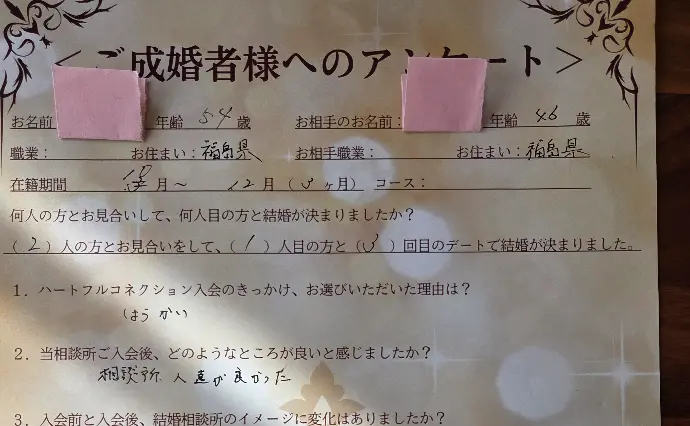 ＜ご成婚者様へのアンケート＞
お名前 年齢 54 歳 お相手のお名前： 年齢 46 歳
職業： お住まい：福島県 お相手職業： お住まい：福島県
在籍期間 月～ 12月（3ヶ月） コース：
何人の方とお見合いして、何人目の方と結婚が決まりましたか？
（2）人の方とお見合いをして、（1）人目の方と（3）回目のデートで結婚が決まりました。
1．ハートフルコネクション入会のきっかけ、お選びいただいた理由は？
しょうかい
2．当相談所ご入会後、どのようなところが良いと感じましたか？
相談所 人達が良かった
3．入会前と入会後、結婚相談所のイメージに変化はありましたか？